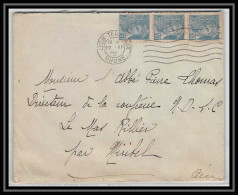 LYON TERREAUX
RHONE
Monsieur l'Abbé Pierre Thomas
Directeur de la confrérie N.D.S.C
Le Mas Rillier
par Miribel
Ain